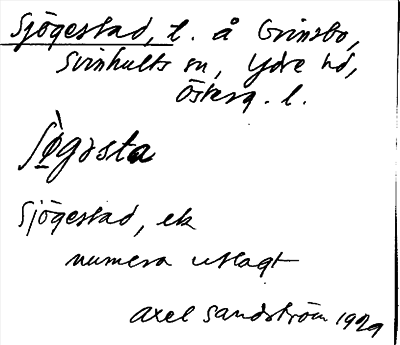 Sjögestad, t. å Grinsbo,
Svinhults sn, Ydre hd,
Österg. l.
Sjögestad, ek
numera utlagt
Axel Sandström 1929